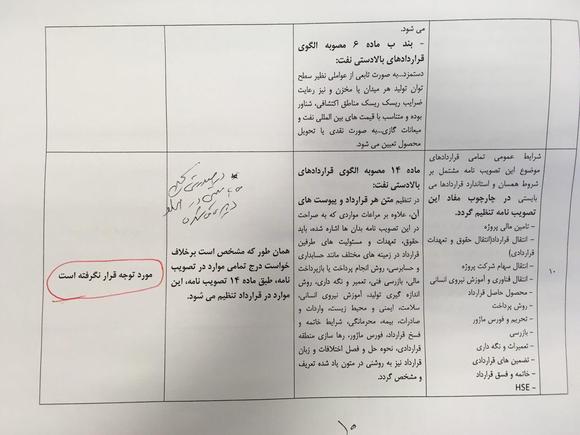 می شود.
- بند ب ماده ۶ مصوبه الگوی
قراردادهای بالادستی نفت:
دستمزد...به صورت تابعی از عواملی نظیر سطح
توان تولید هر میدان یا مخزن و نیز رعایت
ضرایب ریسک ریسک مناطق اکتشافی، شناور
بوده و متناسب با قیمت های بین المللی نفت و
میعانات گازی...به صورت نقدی یا تحویل
محصول تعیین می شود.
شرایط عمومی تمامی قراردادهای
موضوع این تصویب نامه مشتمل بر
شروط همسان و استاندارد قراردادها می
بایستی در چارچوب مفاد این
تصویب نامه تنظیم گردد.
- تامین مالی پروژه
- انتقال قرارداد(انتقال حقوق و تعهدات
قراردادی)
- انتقال سهام شرکت پروژه
- انتقال فناوری و آموزش نیروی انسانی
- محصول حاصل قرارداد
- تحریم و فورس ماژور
- بازرسی
- تعمیرات و نگه داری
- تضمین های قراردادی
- خاتمه و فسق قرارداد
- HSE
ماده ۱۴ مصوبه الگوی قراردادهای
بالادستی نفت:
در تنظیم متن هر قرارداد و پیوست های
آن، علاوه بر مراعات مواردی که به صراحت
در این تصویب نامه بدان ها اشاره شده، باید
حقوق، تعهدات و مسئولیت های طرفین
قرارداد در زمینه های مختلف مانند حسابداری
و حسابرسی، روش انجام پرداخت یا بازپرداخت
مالی، بازرسی فنی، تعمیر و نگه داری، روش
اندازه گیری تولید، آموزش نیروی انسانی،
سلامت، ایمنی و محیط زیست، واردات و
صادرات، بیمه، محرمانگی، شرایط خاتمه و
فسخ قرارداد، فورس ماژور، رها سازی منطقه
قراردادی، نحوه حل و فصل اختلافات و زبان
قرارداد نیز به روشنی در متون یاد شده تعریف
و مشخص گردد.
همان طور که مشخص است برخلاف
خواست درج تمامی موارد در تصویب
نامه، طبق ماده ۱۴ تصویب نامه، این
موارد در قرارداد تنظیم می شود.
مورد توجه قرار نگرفته است
۱۰
۱۰